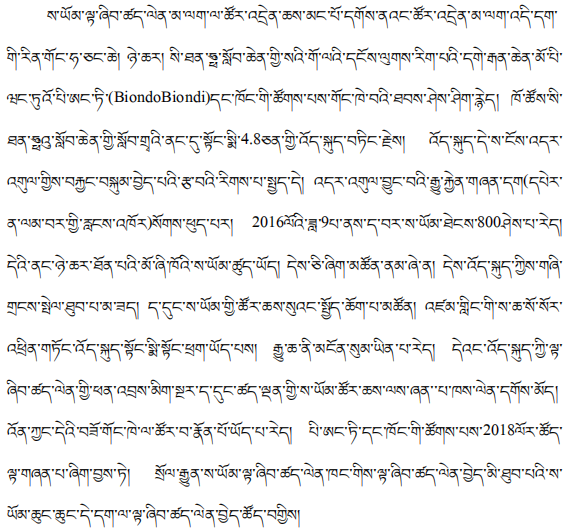 ས་ཡོམ་ལྟ་ཞིབ་ཚད་ལེན་མ་ལག་ལ་ཚོར་འདྲེན་ཆས་མང་པོ་དགོས་ནའང་ཚོར་འདྲེན་མ་ལག་འདི་དག་
གི་རིན་གོང་ཧ་ཅང་ཆེ། ཉེ་ཆར། སི་ཐན་ཧྥུ་སློབ་ཆེན་གྱི་སའི་གོ་ལའི་དངོས་ལུགས་རིག་པའི་དགེ་རྒན་ཆེན་མོ་པི་
ཝང་ཏུའོ་པི་ཨང་ཏི་(BiondoBiondi)དང་ཁོང་གི་ཚོགས་པས་གོང་ཁེ་བའི་ཐབས་ཤེས་ཤིག་རྙེད། ཁོ་ཚོས་སི་
ཐན་ཧྥུའུ་སློབ་ཆེན་གྱི་སློབ་གྲྭའི་ནང་དུ་སྟོང་སྨི་4.8ཅན་གྱི་འོད་སྐུད་བཏིང་རྗེས། འོད་སྐུད་དེ་ས་ངོས་འདར་
འགུལ་གྱིས་བརྐྱང་བསྐུམ་བྱེད་པའི་རྩ་བའི་རིགས་པ་སྤྱད་དེ། འདར་འགུལ་བྱུང་བའི་རྒྱུ་རྐྱེན་གཞན་དག(དཔེར་
ན་ལམ་བར་གྱི་རླངས་འཁོར)སོགས་ཕུད་པར། 2016ལོའི་ཟླ་9པ་ནས་ད་བར་ས་ཡོམ་ཐེངས་800ཤེས་པ་རེད།
དེའི་ནང་ཉེ་ཆར་ཐོན་པའི་མོ་ཞི་ཁོའི་ས་ཡོམ་ཚུད་ཡོད། དེས་ཅི་ཞིག་མཚོན་ནམ་ཞེ་ན། དེས་འོད་སྐུད་ཀྱིས་གཞི་
གྲངས་སྤེལ་ཐུབ་པ་མ་ཟད། ད་དུང་ས་ཡོམ་གྱི་ཚོར་ཆས་སུའང་སྤྱོད་ཆོག་པ་མཚོན། འཛམ་གླིང་གི་ས་ཆ་སོ་སོར་
འཕྲིན་གཏོང་འོད་སྐུད་སྟོང་སྨི་སྟོང་ཕྲག་ཡོད་པས། རྒྱུ་ཆ་ནི་མངོན་སུམ་ཡིན་པ་རེད། དེའང་འོད་སྐུད་ཀྱི་ལྟ་
ཞིབ་ཚད་ལེན་གྱི་ཕན་འབྲས་མིག་སྔར་ད་དུང་ཚད་ལྡན་གྱི་ས་ཡོམ་ཚོར་ཆས་ལས་ཞན་པ་ཁས་ལེན་དགོས་མོད།
འོན་ཀྱང་དེའི་བཟོ་གོང་ཁེ་ལ་ཚོར་བ་རྣོན་པོ་ཡོད་པ་རེད། པི་ཨང་ཏི་དང་ཁོང་གི་ཚོགས་པས་2018ལོར་ཚོད་
ལྟ་གཞན་པ་ཞིག་བྱས་ཏེ། སྲོལ་རྒྱུན་ས་ཡོམ་ལྟ་ཞིབ་ཚད་ལེན་ཁང་གིས་ལྟ་ཞིབ་ཚད་ལེན་བྱེད་མི་ཐུབ་པའི་ས་
ཡོམ་ཆུང་ཆུང་དེ་དག་ལ་ལྟ་ཞིབ་ཚད་ལེན་བྱེད་ཚོད་བགྱིས།